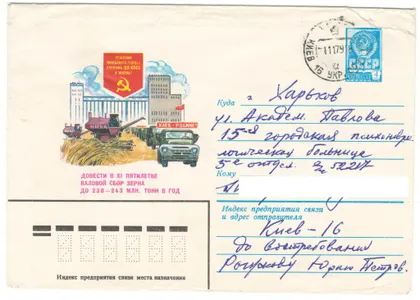 КИЕВ
УКР
СССР
ХЛЕБ - РОДИНЕ!
ДОВЕСТИ В XI ПЯТИЛЕТКЕ
ВАЛОВОЙ СБОР ЗЕРНА
ДО 238–243 МЛН. ТОНН В ГОД
Куда г. Харьков
ул. Академ. Павлова
15-ая городская психоневро
логическая больница
5е отдел.
Кому
Индекс предприятия связи
и адрес отправителя
Киев-16
до востребования
Юрию Петров.
Индекс предприятия связи места назначения